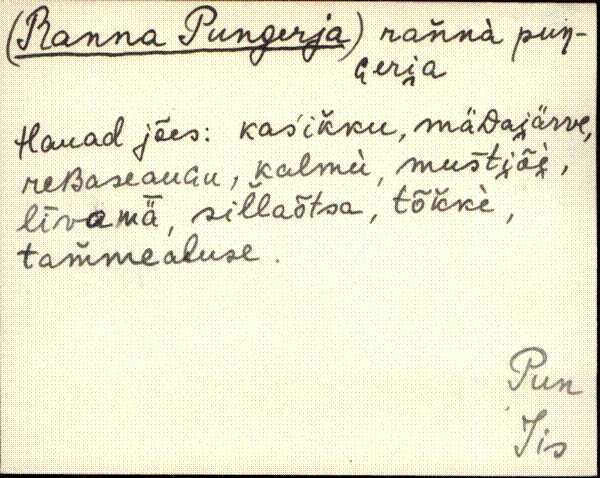 (Ranna Pungerja) rañnà puŋ-
geri̭a
Hauad jões: kaśik̆ku, mäᴅajärve,
reʙaseauᴀu, kalmù, mustjõè,
līvamä̆, sil̆laõtsa, tõk̆kè,
tam̆mealuse.
Pun
Jis